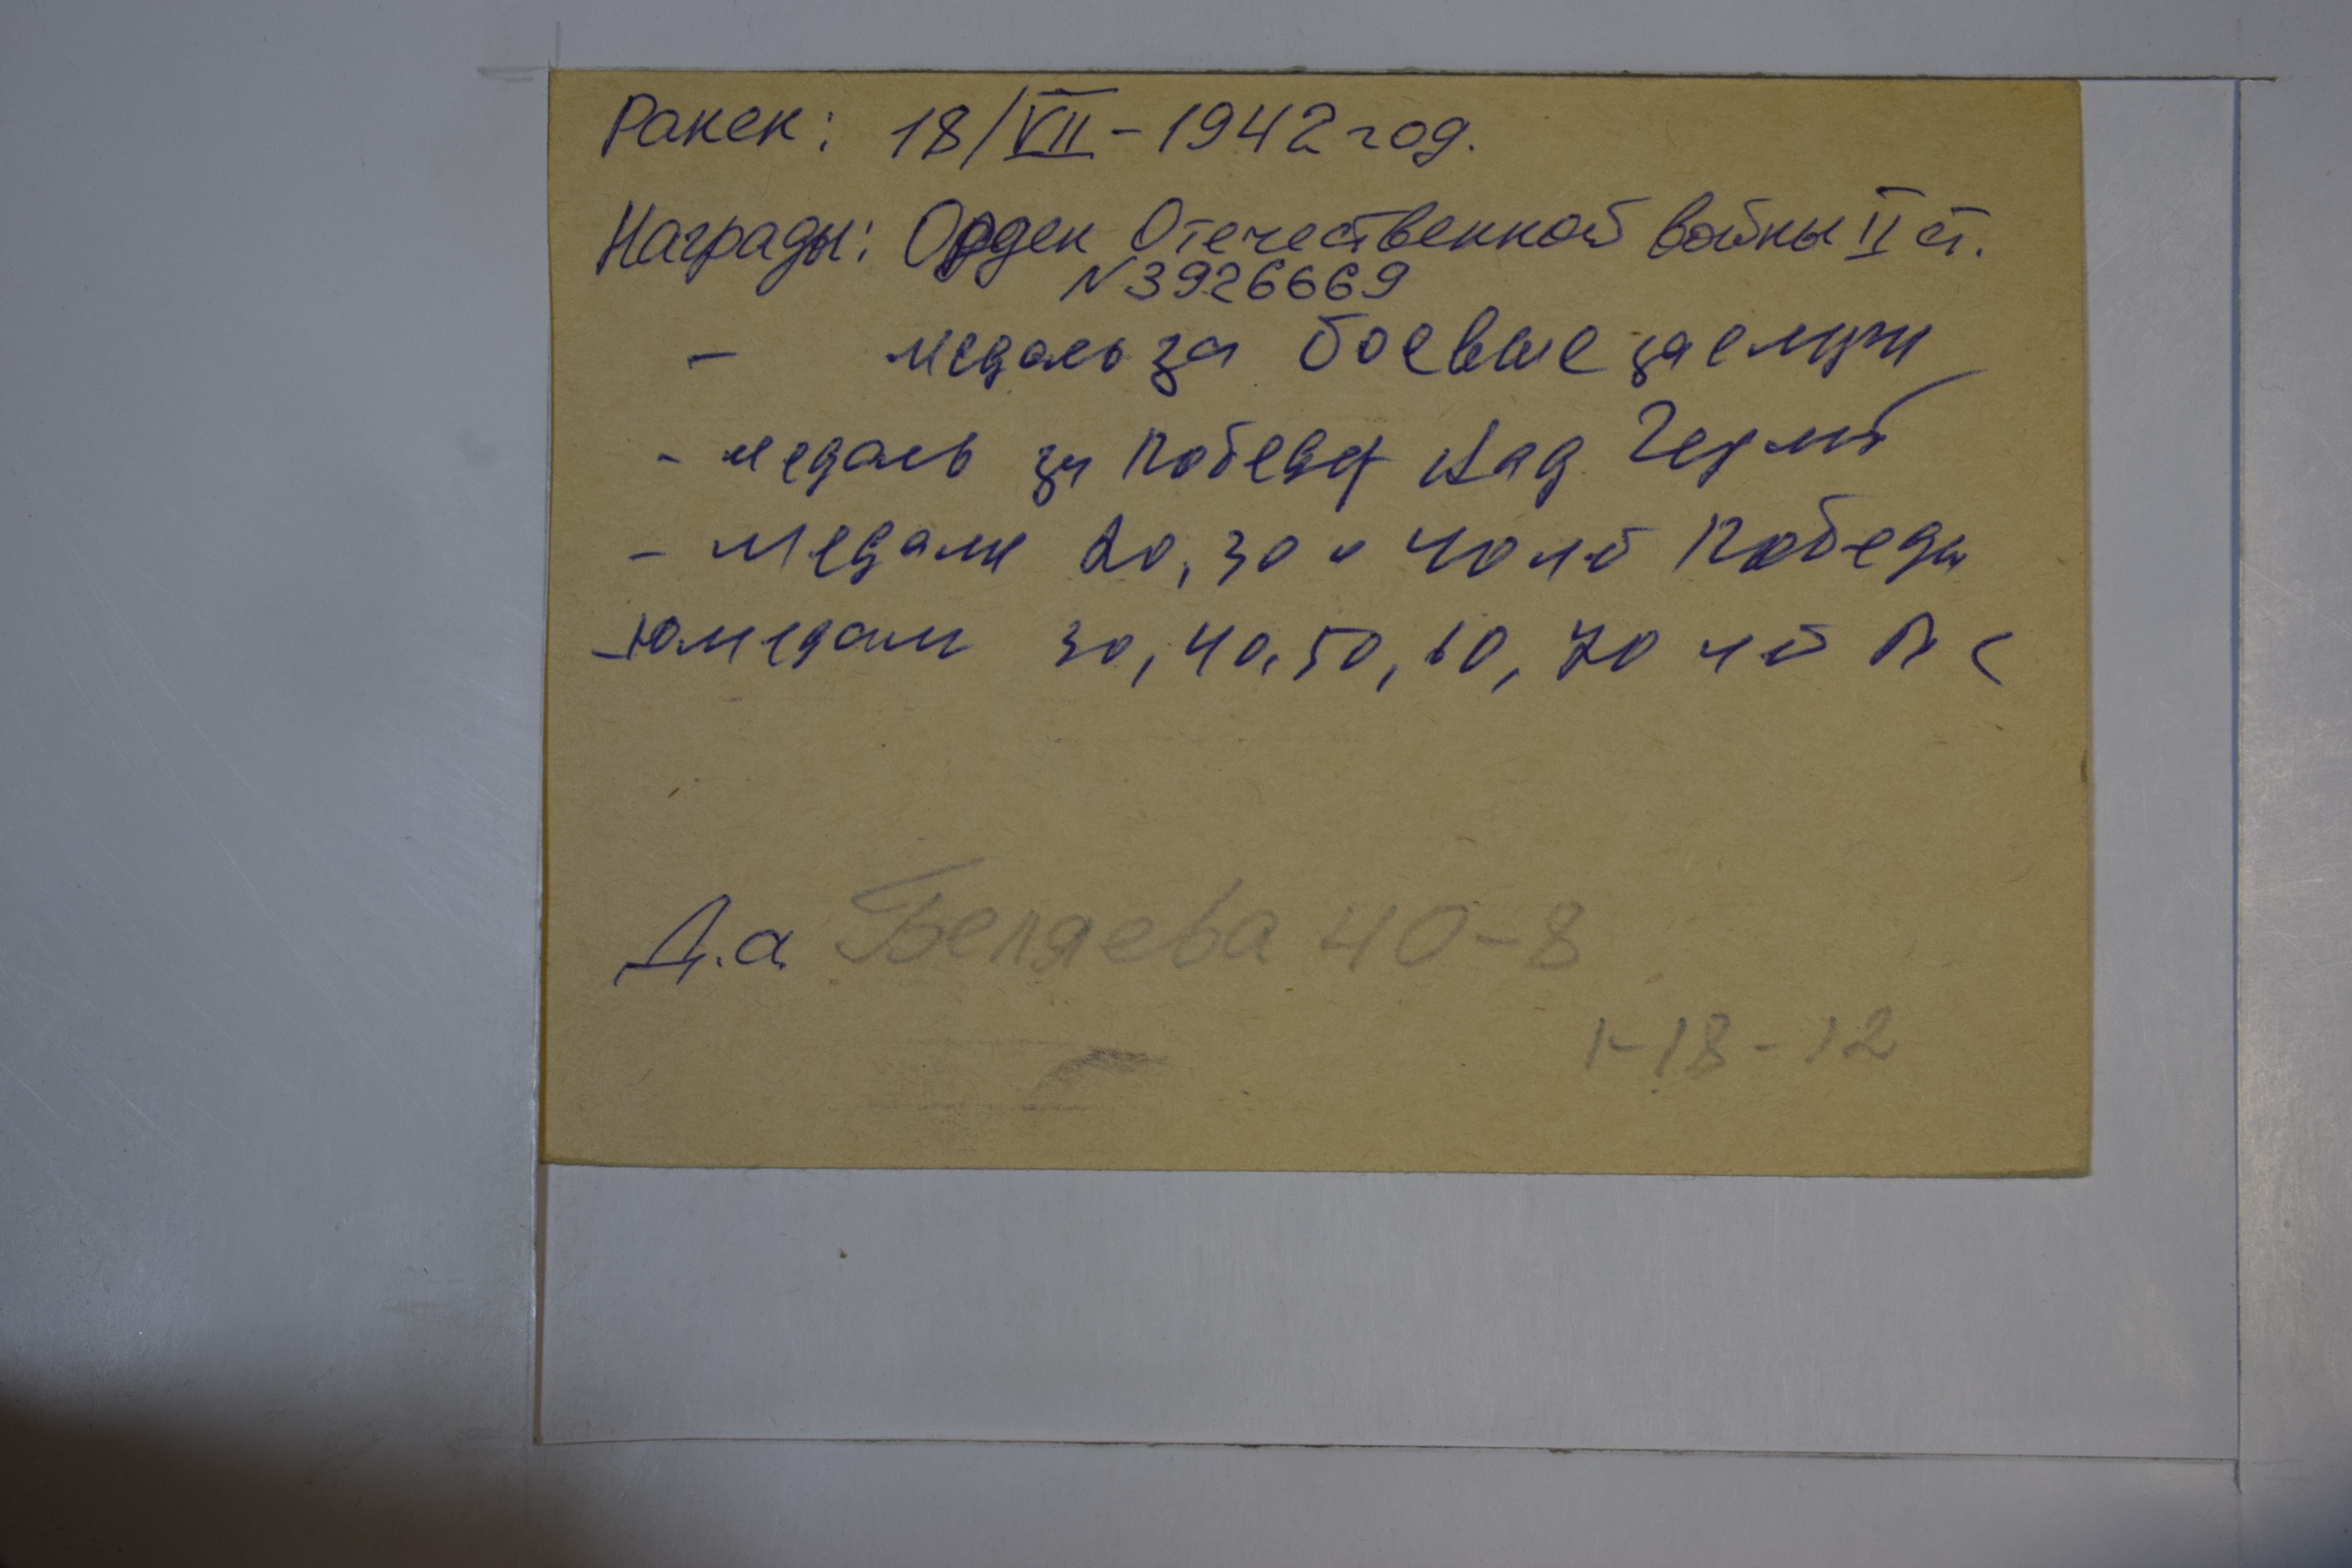 Ранен: 18/VII - 1942 год.
Награды: Орден Отечественной войны II ст.
N 3926669
- медаль за боевые заслуги
- медаль за победу над Герм
- медали 20, 30 и 40 лет Победы
- юмедали 30, 40, 50, 60, 70 лет ВС
Д.а. Беляева 40-8
1-18-12